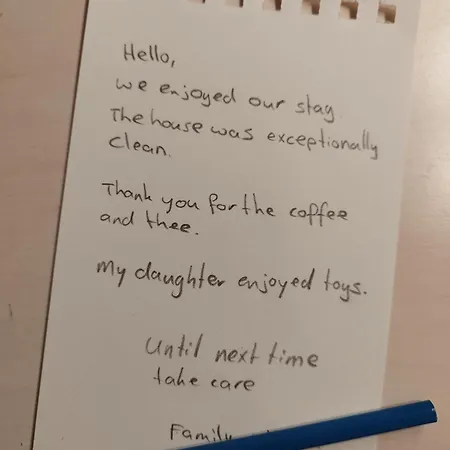 Hello,
we enjoyed our stay.
The house was exceptionally
clean.
Thank you for the coffee
and thee.
My daughter enjoyed toys.
Until next time
take care
Family